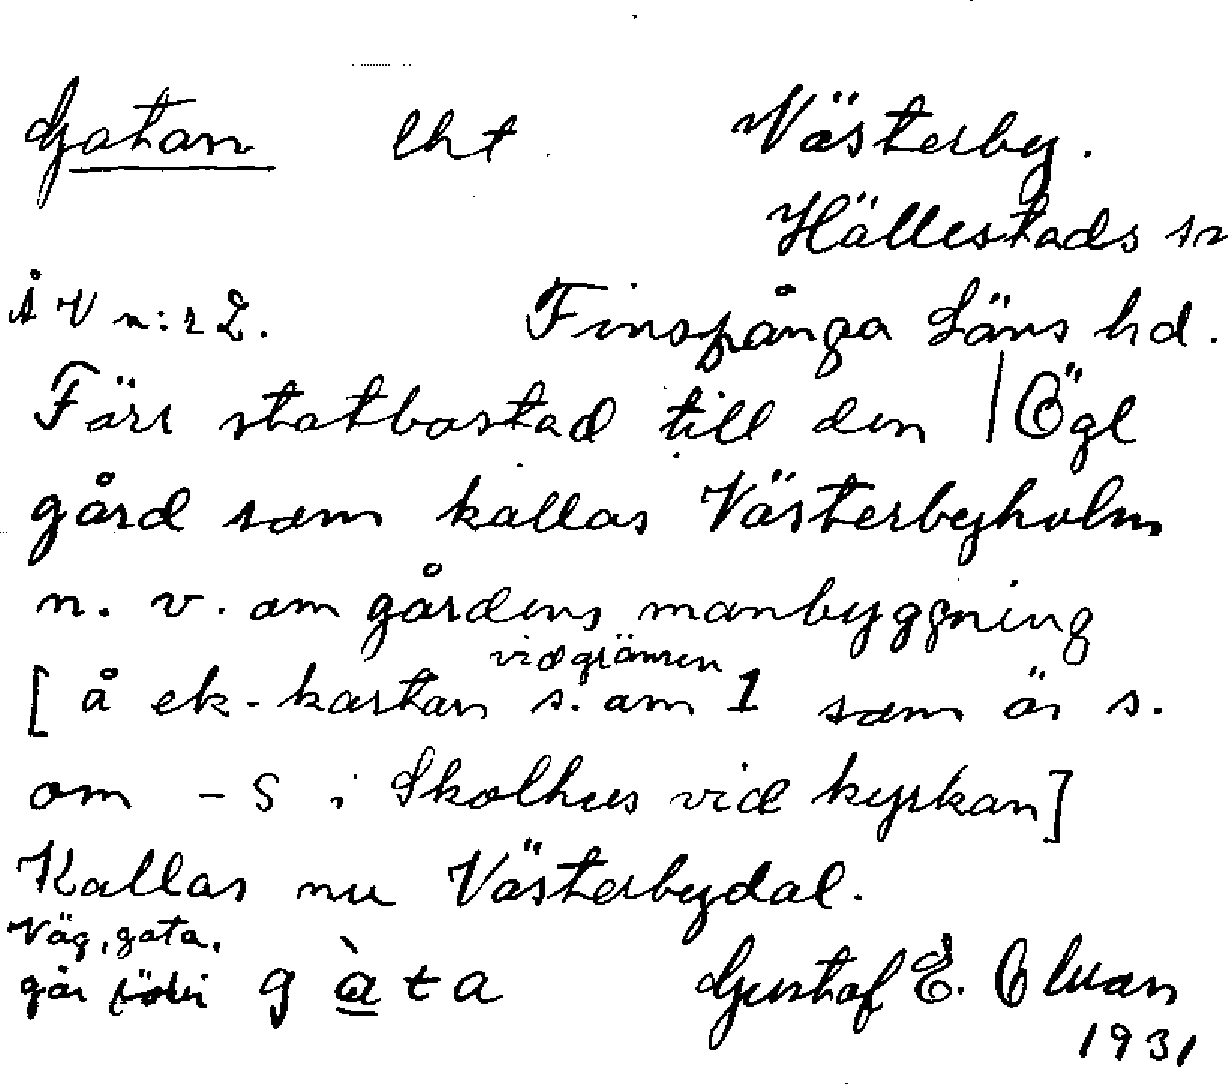 Gatan lht Västerby.
Hällestads sn
ÅV n:r 2. Finspånga Läns hd.
Förr statbostad till den | Ögl
gård som kallas Västerbyholm
n. v. om gårdens manbyggning
[å ek-kartan s. om 1 som är s.
vid gränsen
om - S i Skolhus vid kyrkan]
Kallas nu Västerbydal.
Väg, gata,
går g à t a Gustaf E.
1931